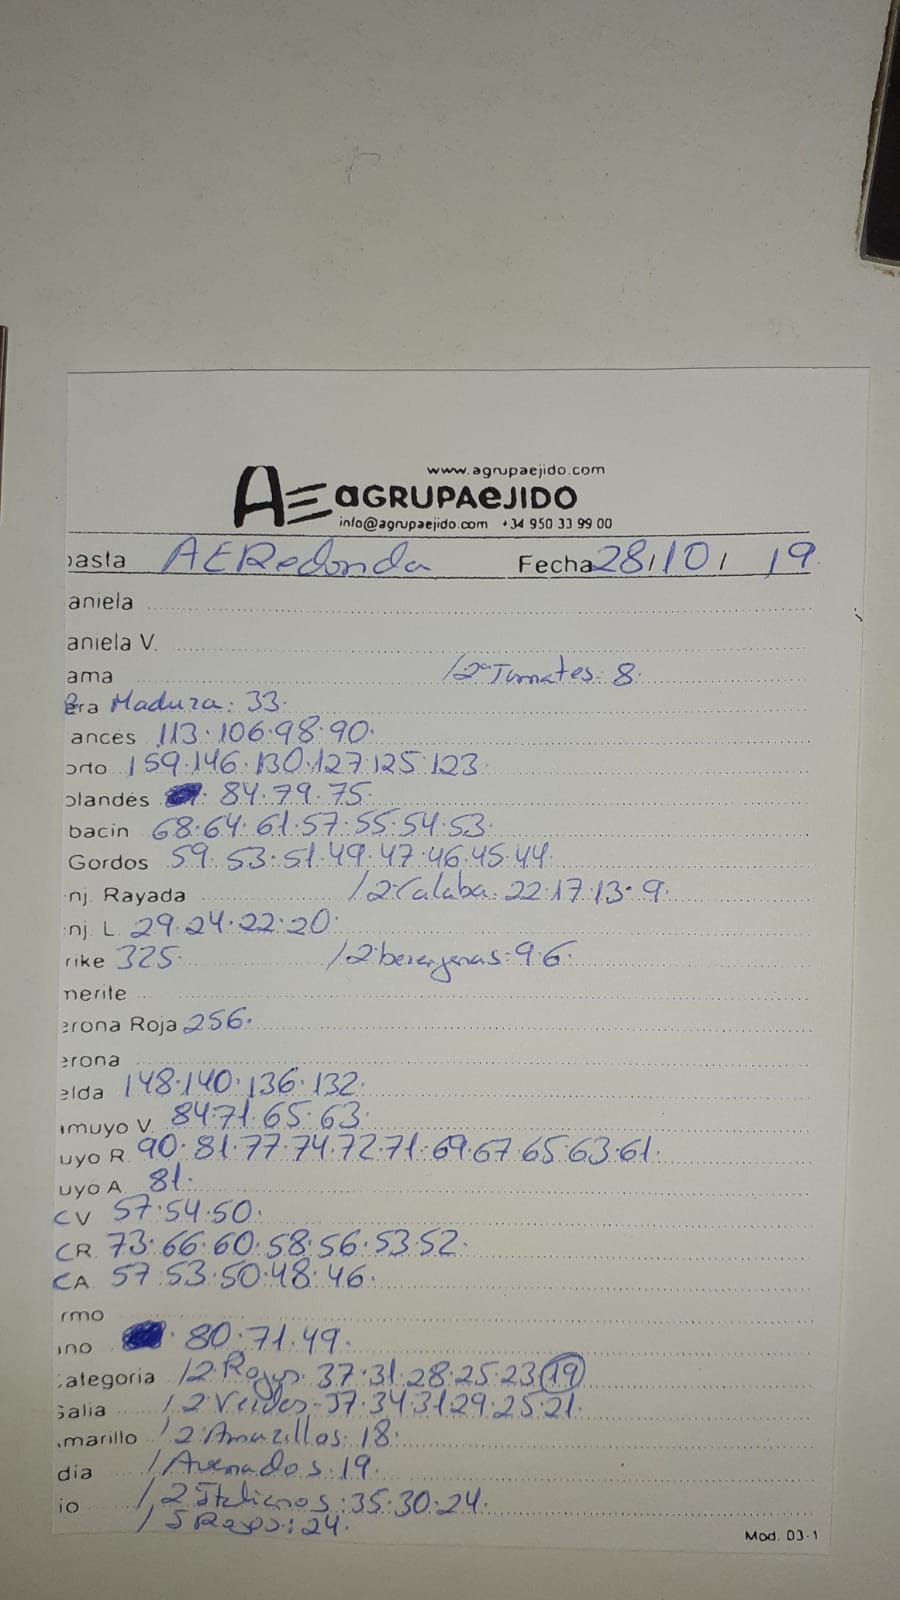 www.agrupaejido.com
AE aGRUPAeJIDO
info@agrupaejido.com +34 950 33 99 00
basta AERedonda Fecha 28/10/19
aniela
aniela V.
ama /2ª Tomates: 8.
era Madura: 33.
ances 113·106·98·90.
orto 159·146·130·127·125·123.
olandés 84·79·75.
bacin 68·64·61·57·55·54·53.
Gordos 59·53·51·49·47·46·45·44.
nj. Rayada /2 Calaba: 22·17·13·9.
nj. L. 29·24·22·20.
rike 325. /2 berenjenas: 9·6.
nerite
erona Roja 256.
erona
elda 148·140·136·132.
muyo V. 84·71·65·63.
uyo R. 90·81·77·74·72·71·69·67·65·63·61.
uyo A. 81.
CV 57·54·50.
CR. 73·66·60·58·56·53·52.
CA. 57·53·50·48·46.
rmo
ino 80·71·49.
ategoria /2 Rojos. 37·31·28·25·23 19
Galia /2 Verdes-37·34·31·29·25·21.
marillo /2 Amarillos: 18.
dia / Asenados: 19.
io /2 Italianos: 35·30·24.
/ 5 Rojos: 24.
Mod. 03-1